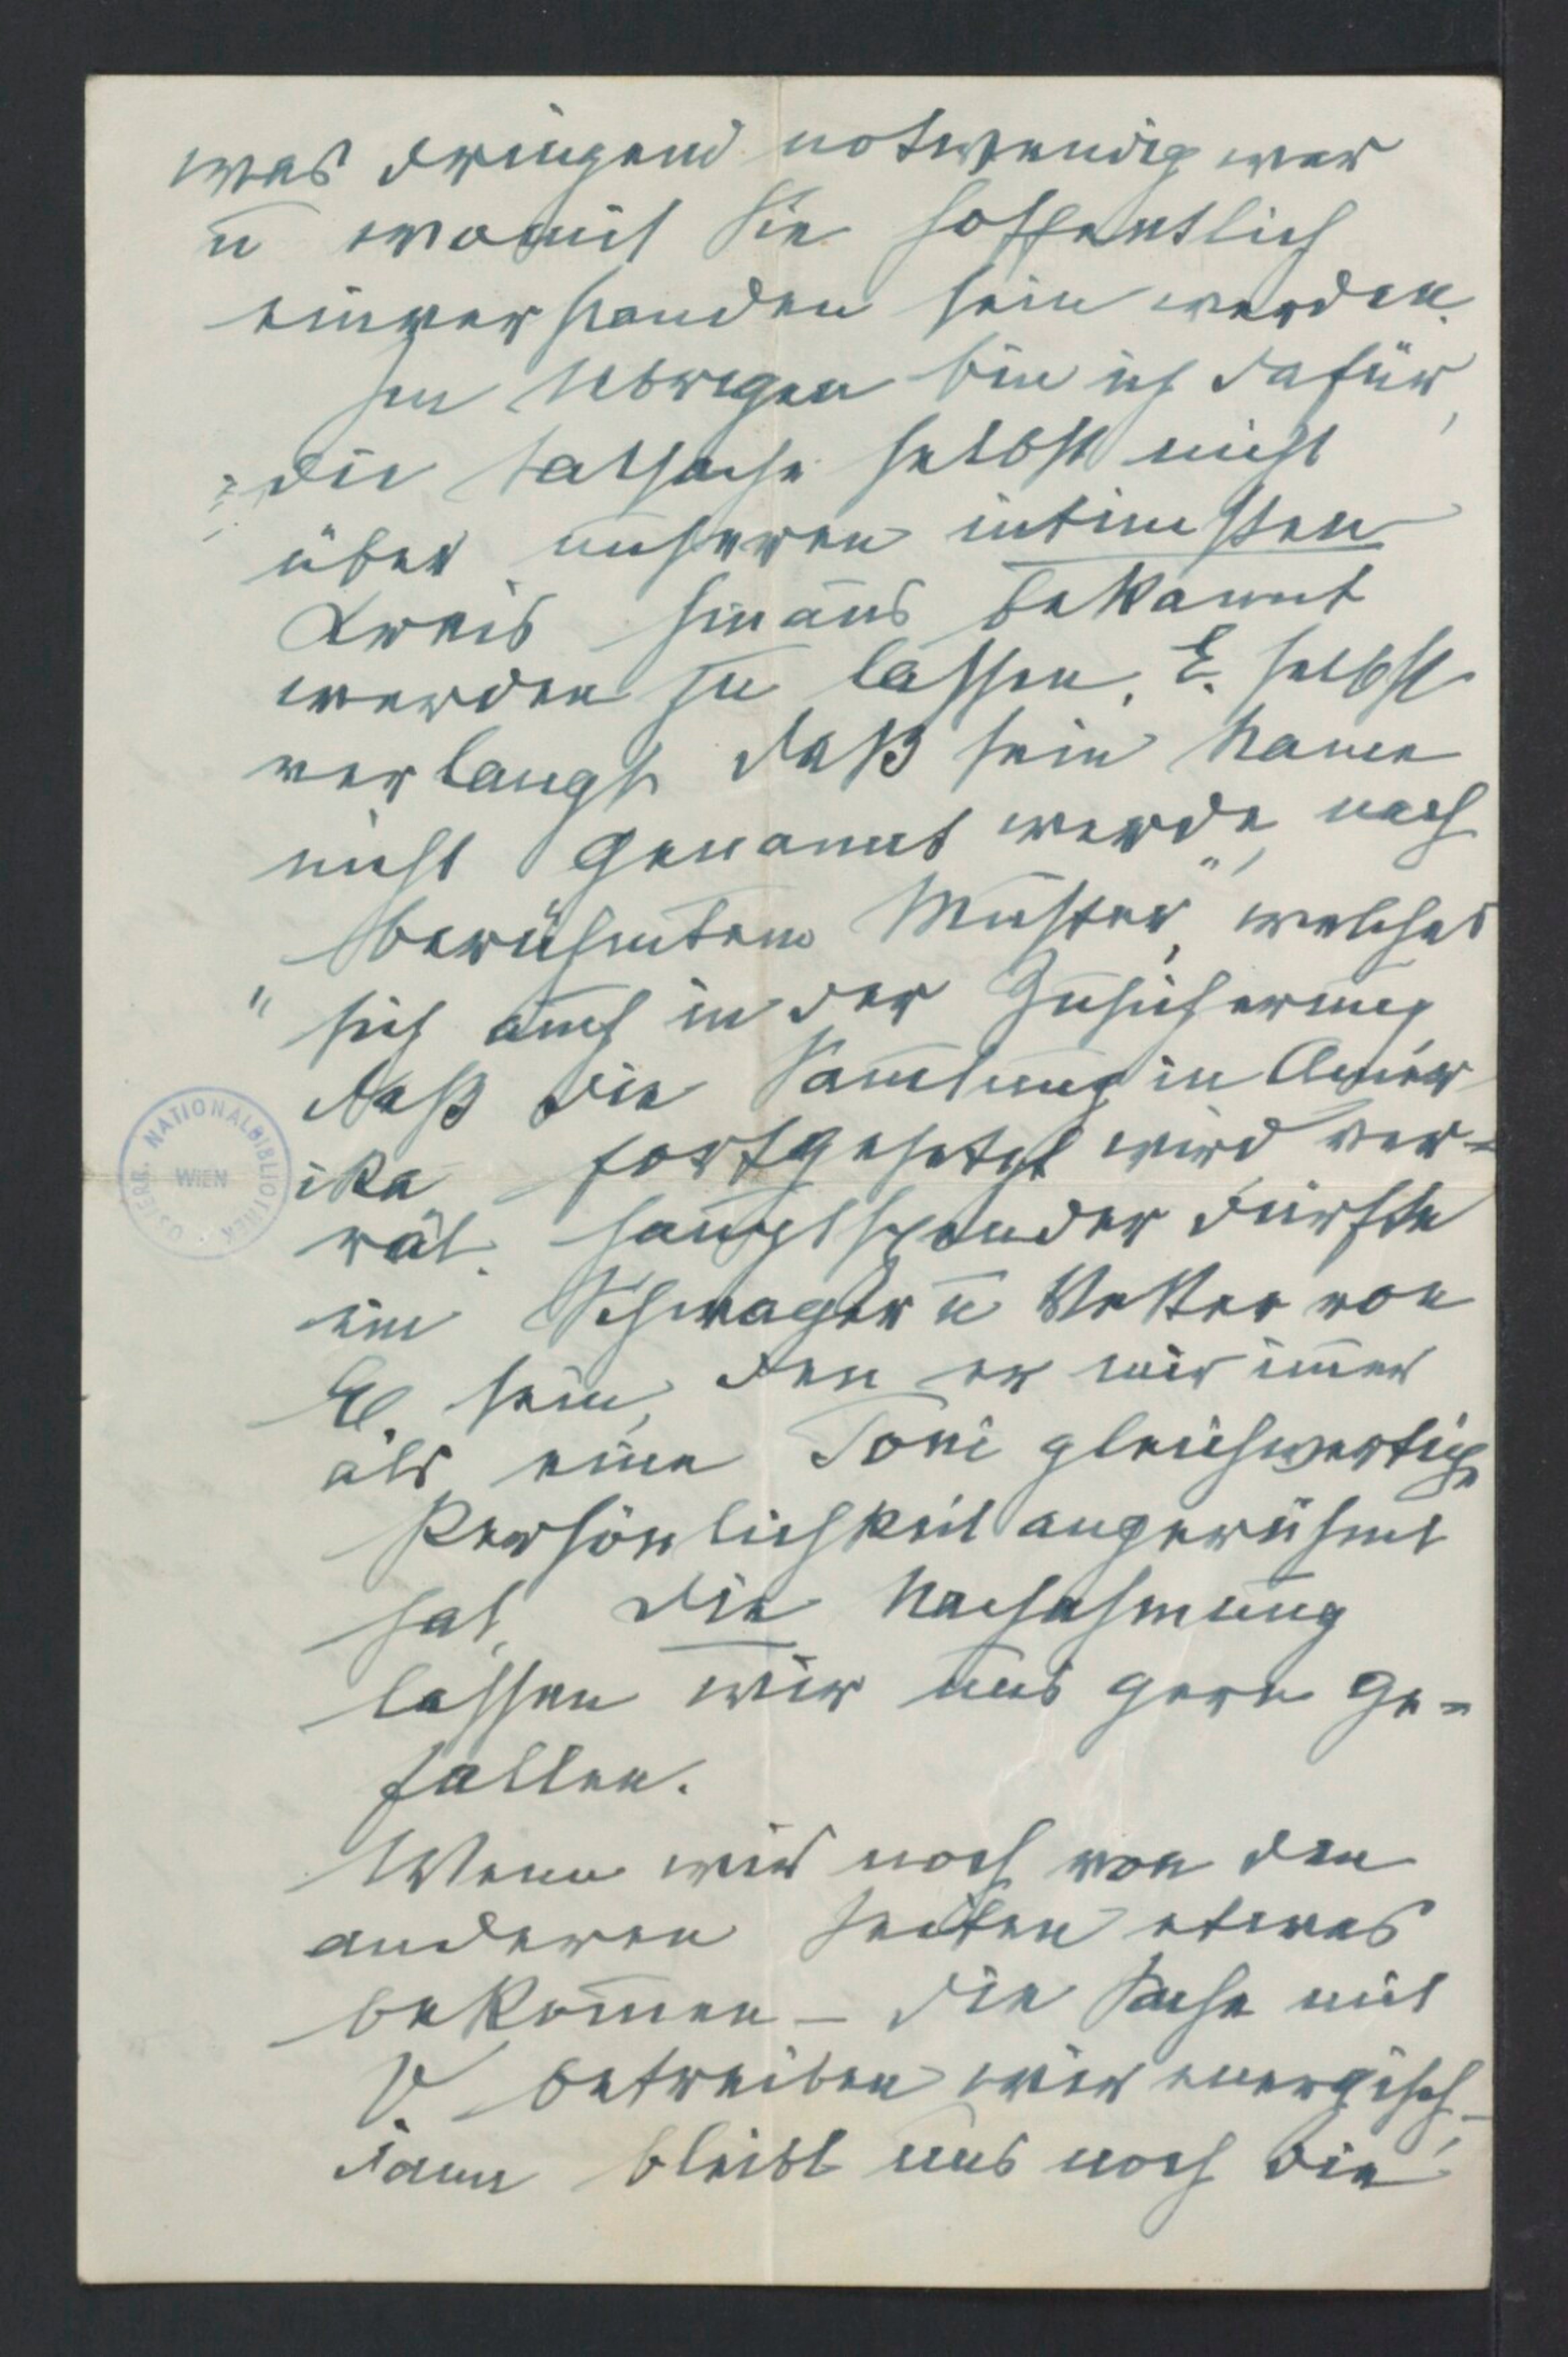 was dringend notwendig war
u womit Sie hoffentlich
einverstanden sein werden.
Im Uebrigen bin ich dafür,
die Tatsache selbst nicht
über unseren intimsten
Kreis hinaus bekannt
werden zu lassen. E. selbst
verlangt daß sein Name
nicht genannt werde, nach
berühmtem Muster", welches
" sich auch in der Zusicherung
daß die Samlung in Amer
ika fortgesetzt wird ver=
rät. Hauptspender dürfte
ein Schwager u Vetter von
E. sein, den er mir imer
als eine Toni gleichwertige
Persönlichkeit angerühmt
hat. Die Nachahmung
lassen wir uns gern ge=
fallen.
Wenn wir noch von den
anderen Seiten etwas
bekomen – die Sache mit
betreiben wir energisch –,
dann bleibt uns noch die
ÖSTERR. NATIONALBIBLIOTHEK
WIEN